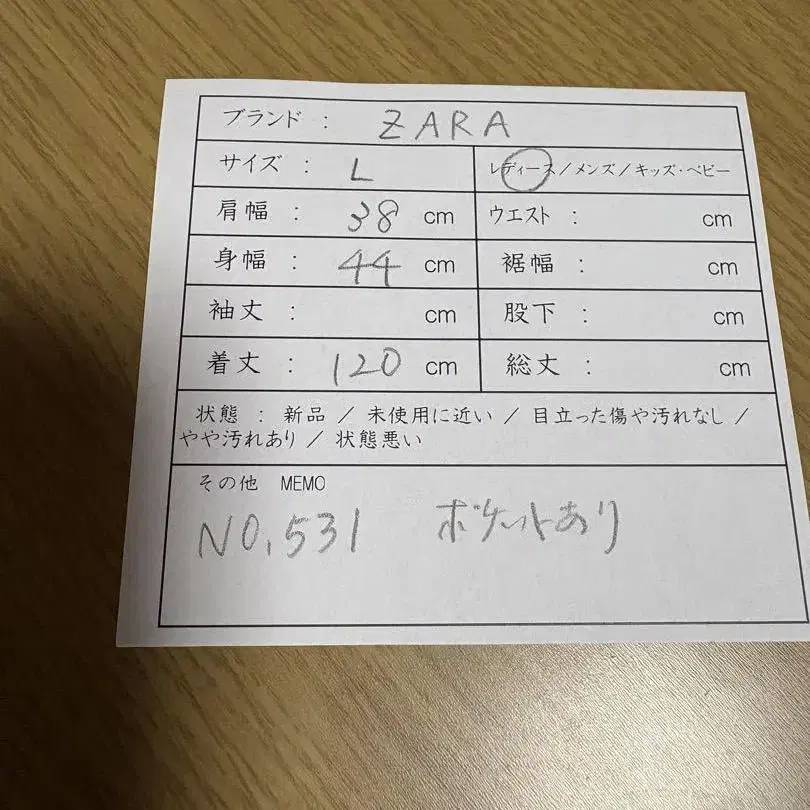 ブランド : ZARA
サイズ : L レディース/メンズ/キッズ・ベビー
肩幅 : 38 cm ウエスト : cm
身幅 : 44 cm 裾幅 : cm
袖丈 : cm 股下 : cm
着丈 : 120 cm 総丈 : cm
状態 : 新品 / 未使用に近い / 目立った傷や汚れなし /
やや汚れあり / 状態悪い
その他 MEMO
NO.531 ポケットあり